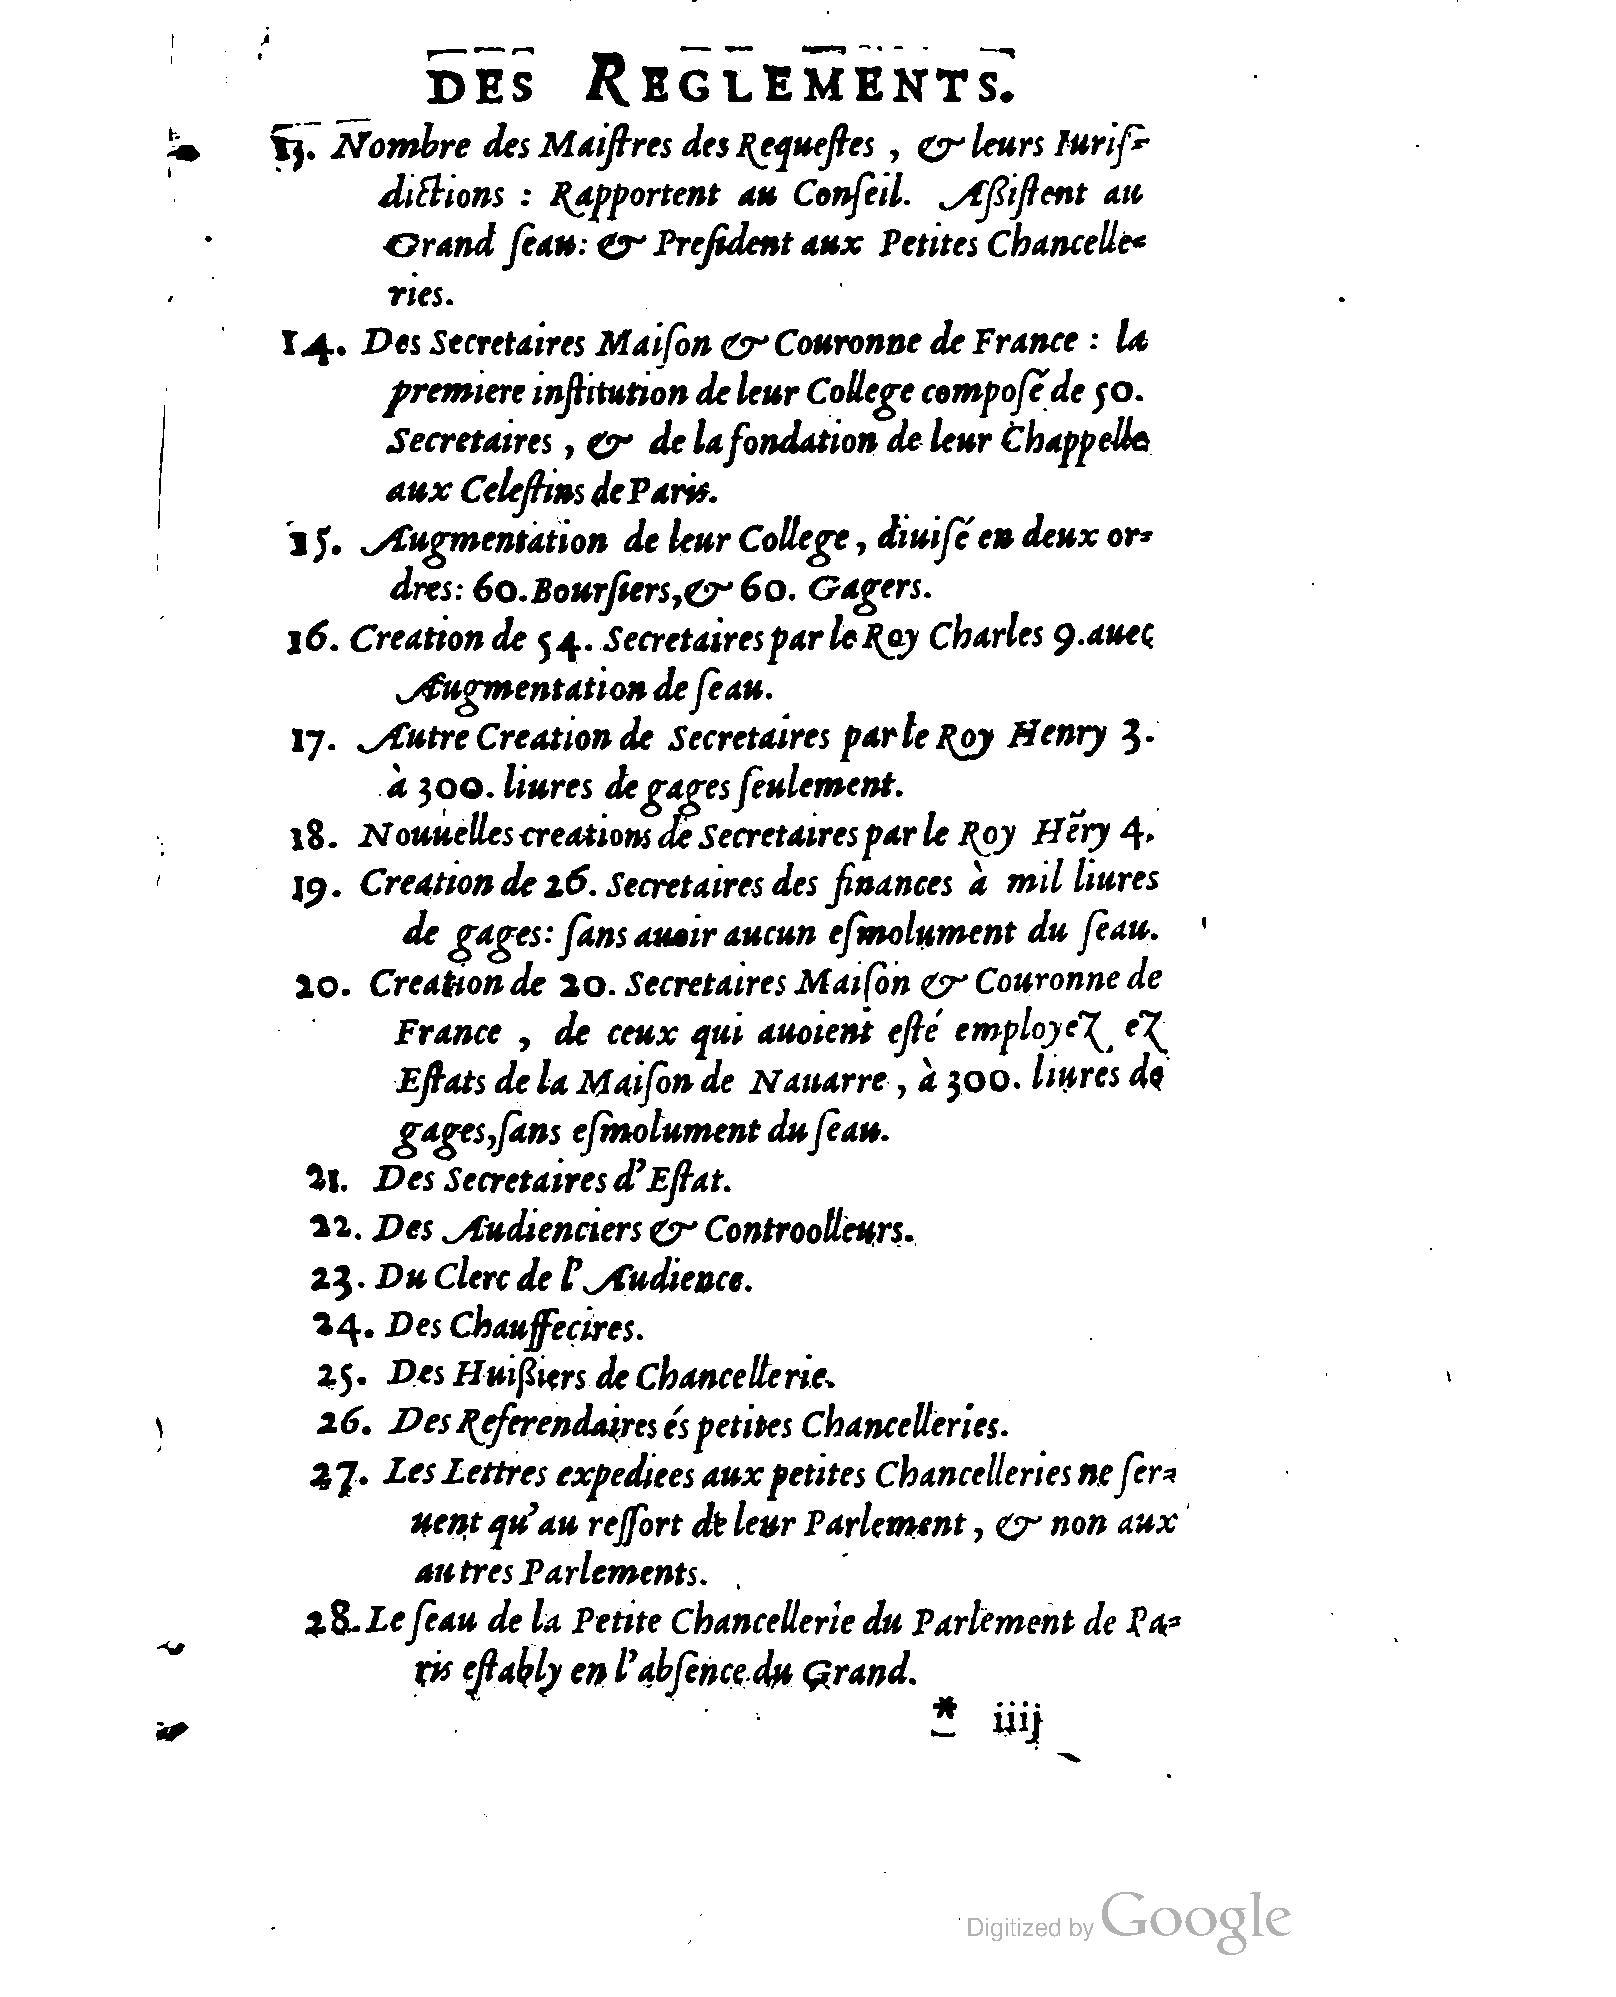 DES REGLEMENTS.
13. Nombre des Maiſtres des Requeſtes , & leurs Iuriſ-
dictions : Rapportent au Conſeil. Aßiſtent au
Grand ſeau: & Preſident aux Petites Chancelle-
ries.
14. Des Secretaires Maiſon & Couronne de France : la
premiere inſtitution de leur College compoſé de 50.
Secretaires , & de la fondation de leur Chappelle
aux Celeſtins de Paris.
15. Augmentation de leur College , diuiſé en deux or-
dres: 60. Bourſiers, & 60. Gagers.
16. Creation de 54. Secretaires par le Roy Charles 9. auec
Augmentation de ſeau.
17. Autre Creation de Secretaires par le Roy Henry 3.
à 300. liures de gages ſeulement.
18. Nouuelles creations de Secretaires par le Roy Hẽry 4.
19. Creation de 26. Secretaires des finances à mil liures
de gages: ſans auoir aucun eſmolument du ſeau.
20. Creation de 20. Secretaires Maiſon & Couronne de
France , de ceux qui auoient eſté employez ez
Eſtats de la Maiſon de Nauarre , à 300. liures de
gages, ſans eſmolument du ſeau.
21. Des Secretaires d'Eſtat.
22. Des Audienciers & Controolleurs.
23. Du Clerc de l'Audience.
24. Des Chauffecires.
25. Des Huißiers de Chancellerie.
26. Des Referendaires és petites Chancelleries.
27. Les Lettres expediees aux petites Chancelleries ne ſer-
uent qu'au reſſort de leur Parlement , & non aux
autres Parlements.
28. Le ſeau de la Petite Chancellerie du Parlement de Pa-
ris eſtably en l'abſence du Grand.
* iiij
Digitized by Google